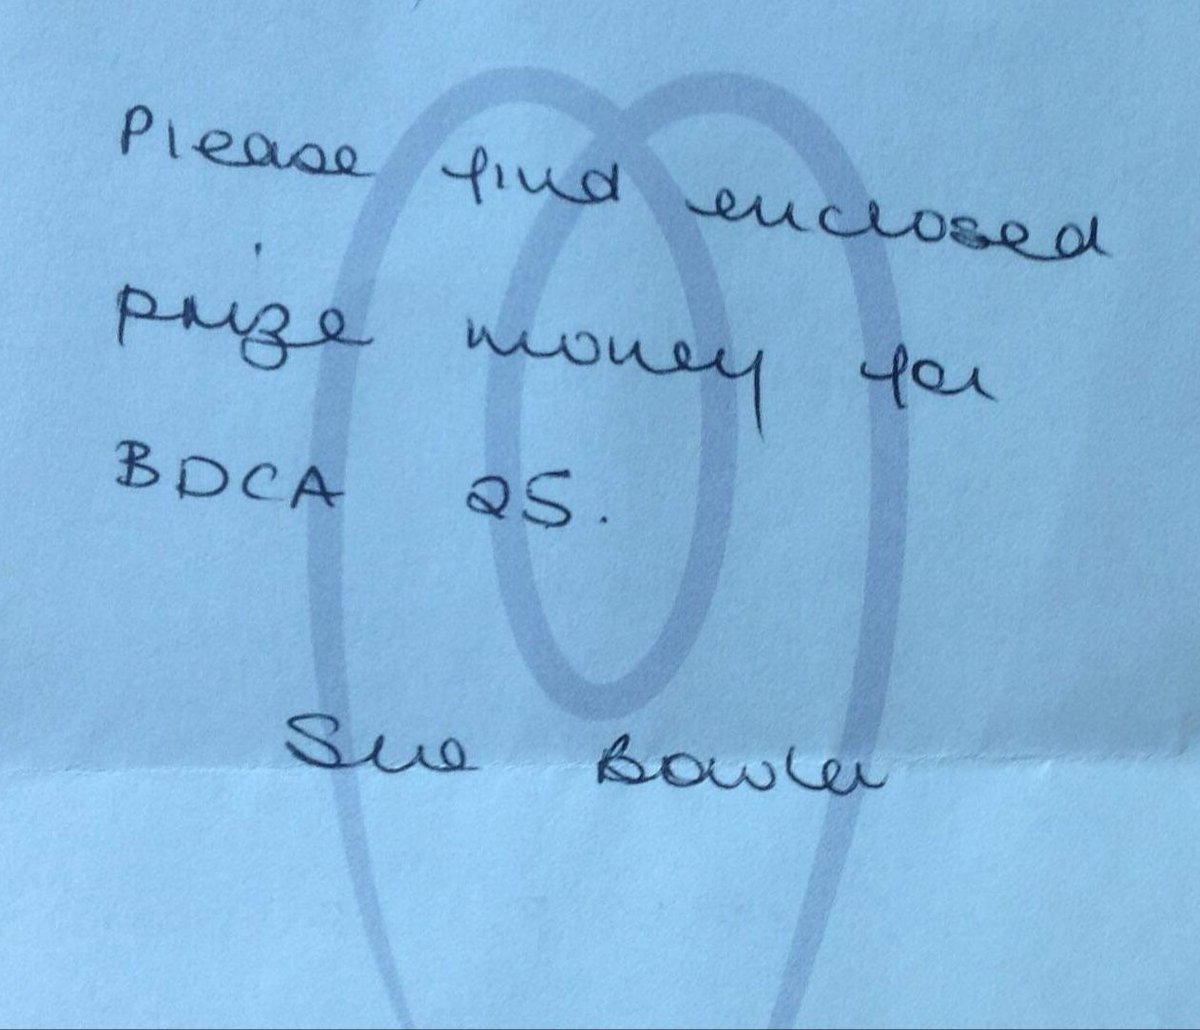 Please find enclosed
prize money for
BDCA 25.
Sue Bowler